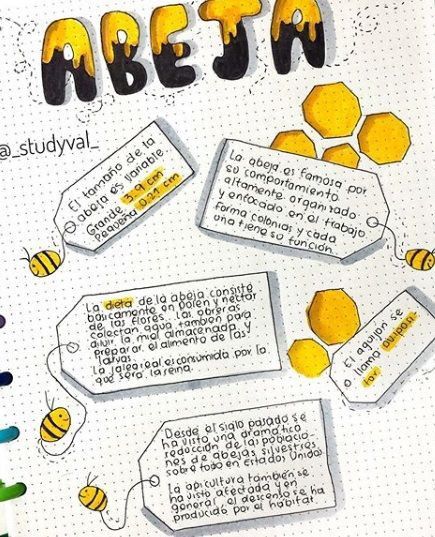 ABEJA
@_studyval_
El tamaño de la
abeja es variable.
Grande 3.9 cm
Pequeña 0.21 cm
La abeja es famosa por
su comportamiento
altamente organizado
y enfocado en el trabajo
Forma colonias y cada
una tiene su función.
La dieta de la abeja consiste
básicamente en polen y néctar
de las flores. Las obreras
colectan agua también para
diluir la miel almacenada y
preparar el alimento de las
larvas.
La jalea real es consumida por la
que será la reina.
El aguijon se
llama
Desde el siglo pasado se
ha visto una dramática
reducción de las poblacio-
nes de abejas silvestres
sobre todo en Estados Unidos
La apicultura también se
ha visto afectada y en
general el descenso se ha
producido por el hábitat.